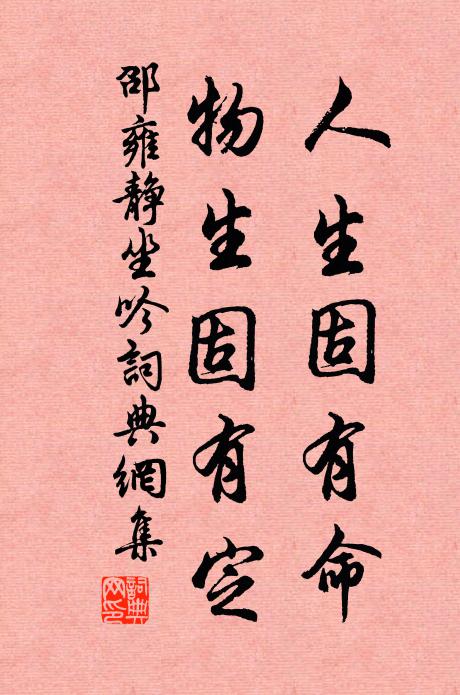 人生固有命
物生固有定
邵雍静坐吟詞典網集
詞典
网印